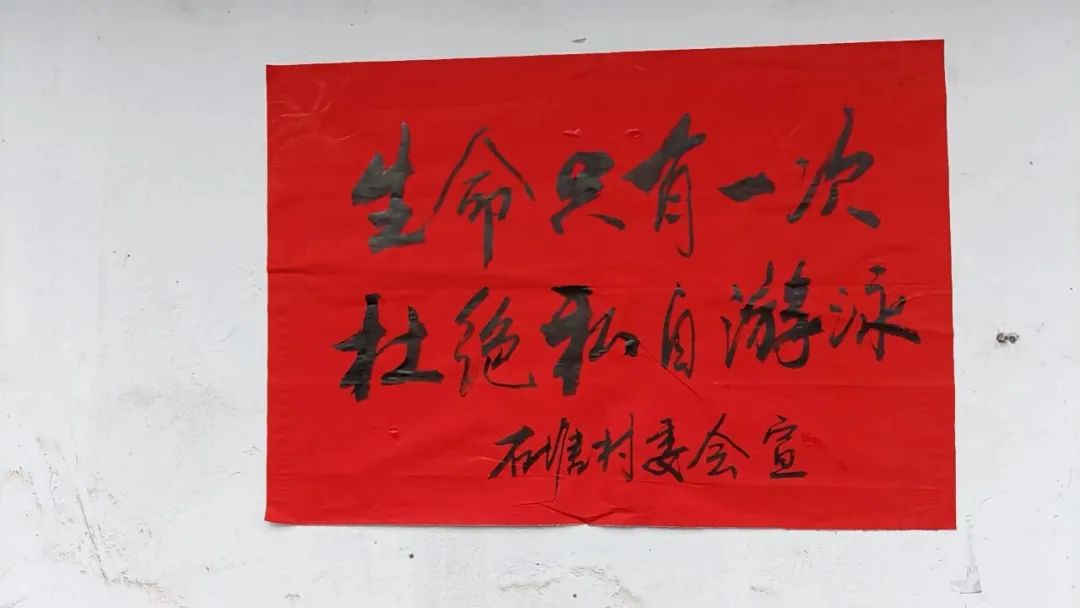 生命只有一次
杜绝私自游泳
石塘村委会宣